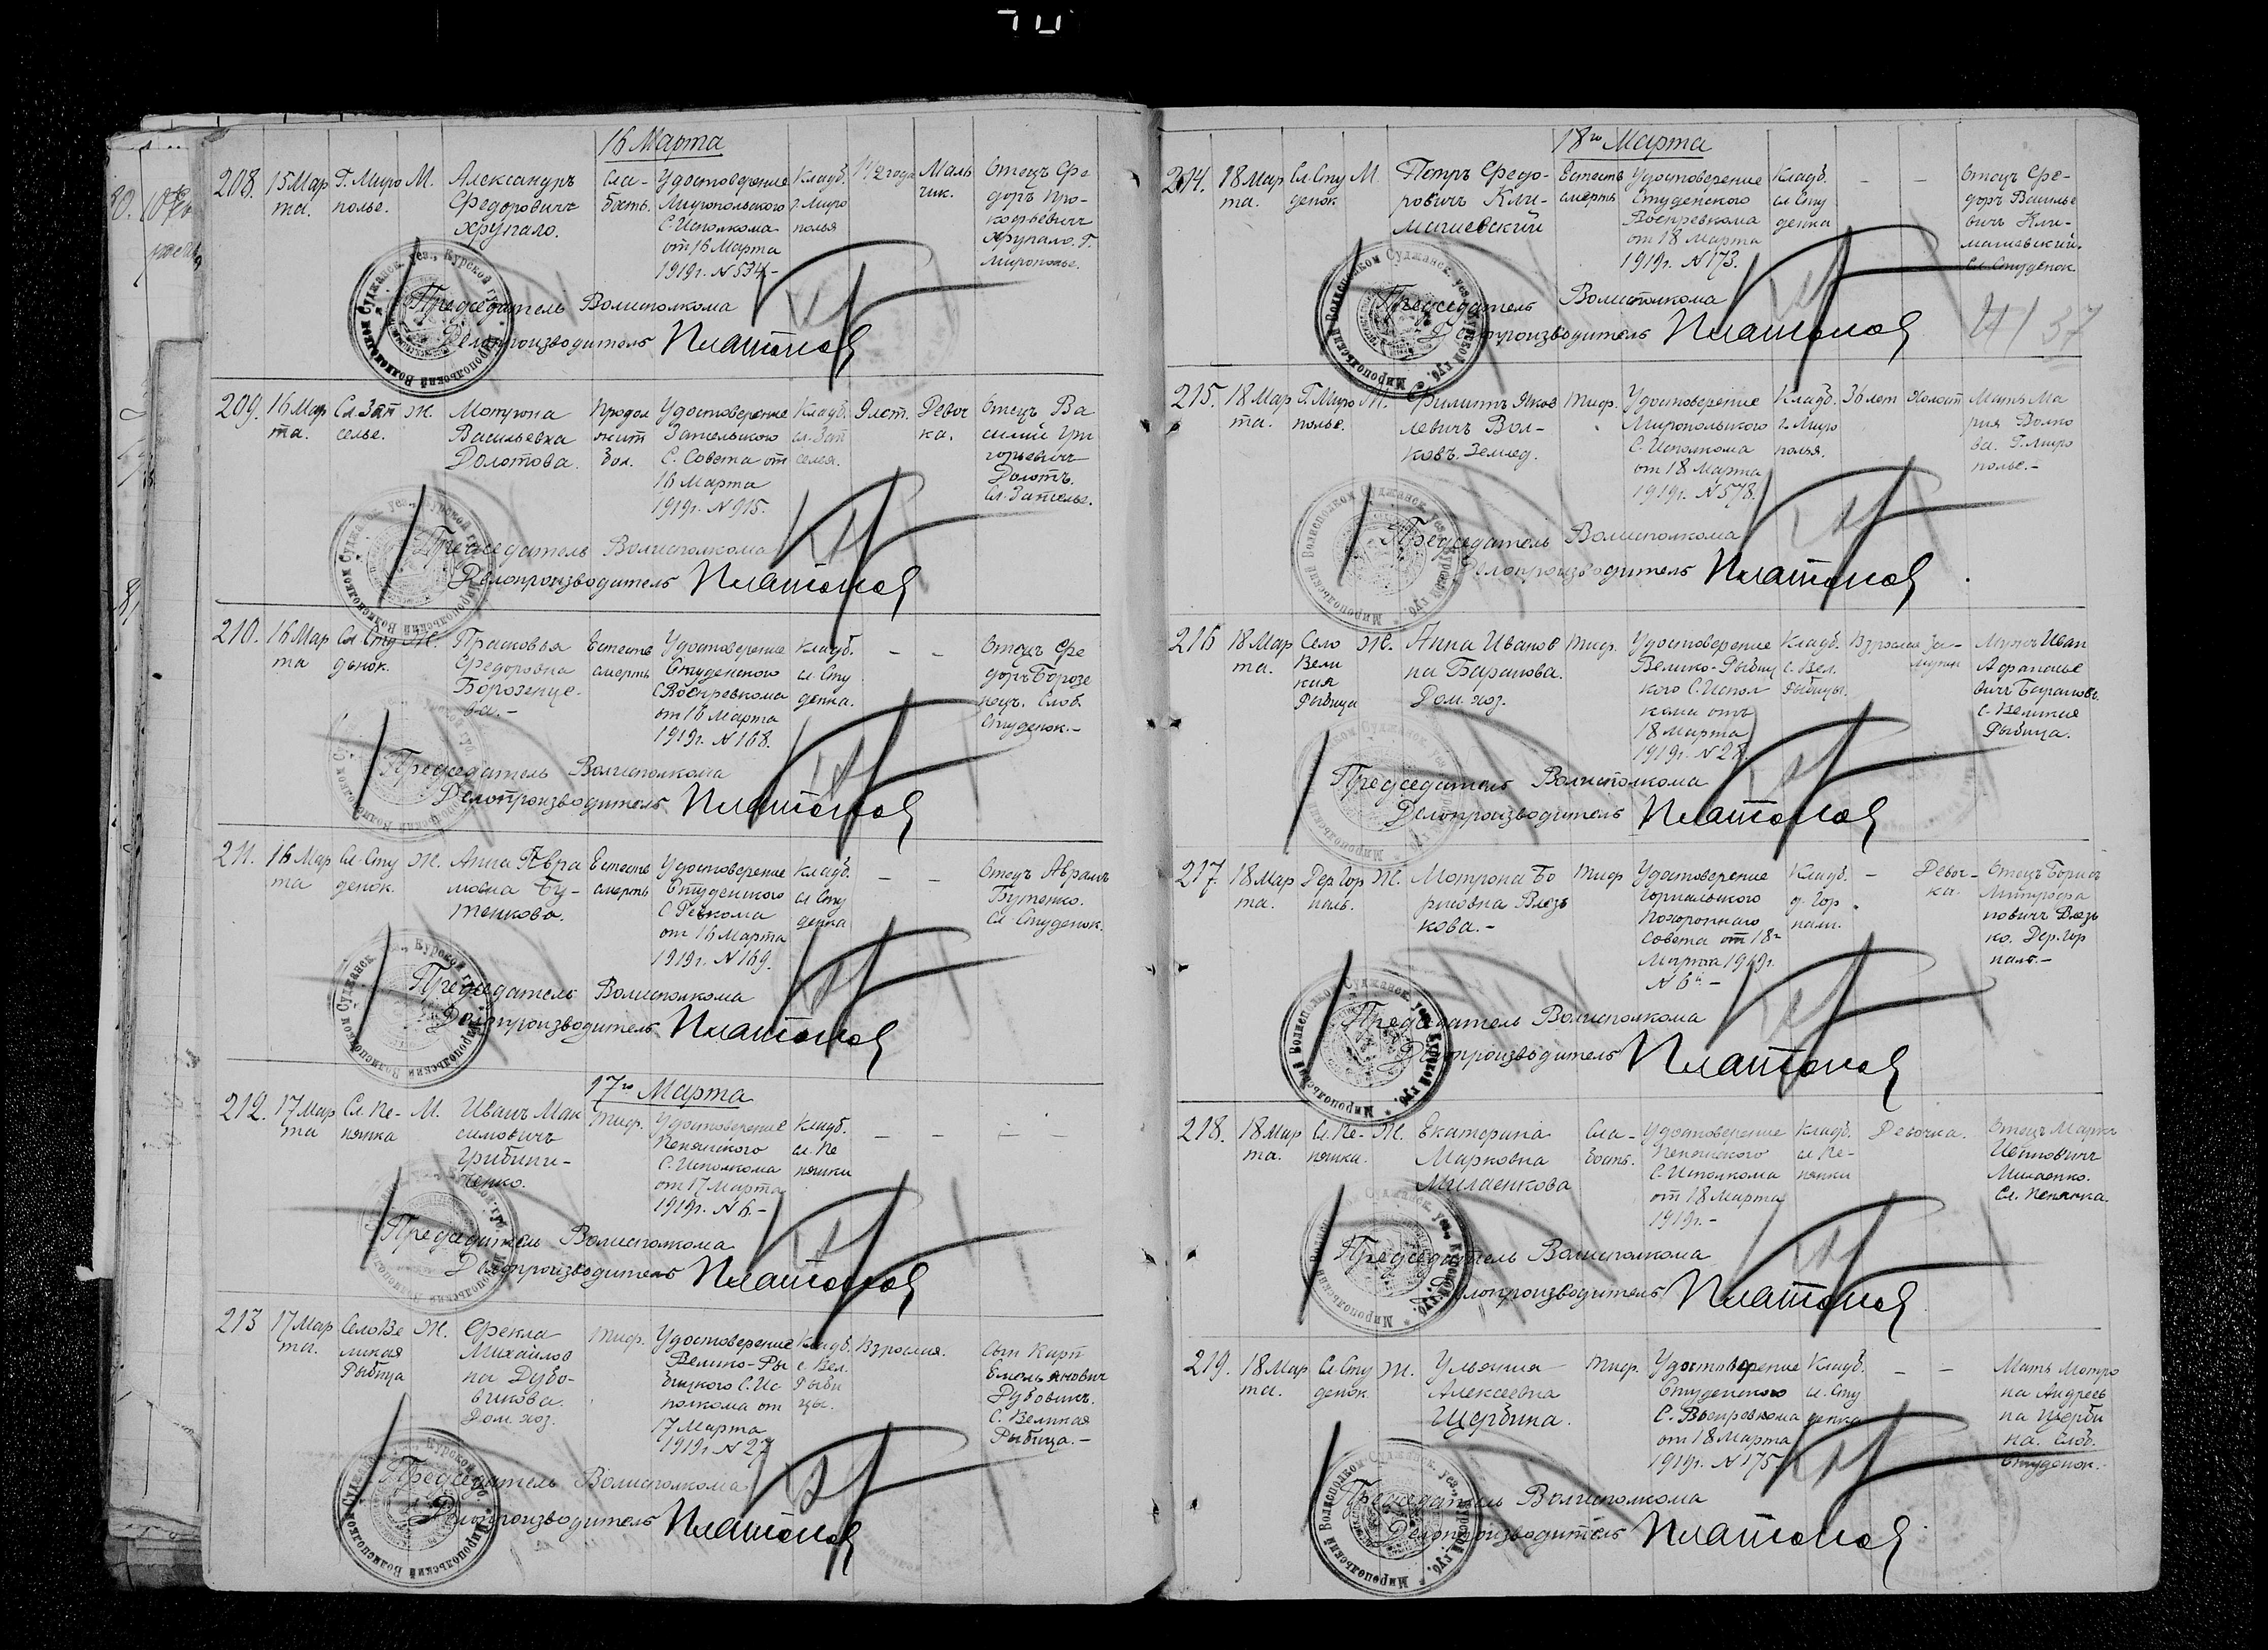 16 Марта
208. 15 Мар та. Г. Миро полье. М. Александръ Федоровичъ Хрупало. Сла- бость. Удостоверение Миропольского С. Исполкома от 16 Марта 1919 г. N 534- Кладб. г. Миро полья 1/2 года Маль чик. Отецъ Фе доръ Про- кофьевичъ Хрупало. Г. Мирополье.
Председатель Волисполкома
Делопроизводитель Платонов
209. 16 Мар та. Сл. Зап селье. Ж. Мотрона Васильевна Долотова. Продол жит бол. Удостоверение Запсельского С. Совета от 16 Марта 1919 г. N 915. Кладб. сл. Зап селья. 9 лет. Девоч ка. Отецъ Ва силий Гри горьевичъ Долотъ. Сл. Запселье.
Председатель Волисполкома
Делопроизводитель Платонов
210. 16 Мар та Сл. Сту денок. Ж. Прасковья Федоровна Борозенце- ва.- Естеств смерть Удостоверение Студенского С Военревкома от 16 Марта 1919 г. N 168. Кладб. сл. Сту денка. - - Отецъ Фе доръ Борозе нец. Слоб. Студенок.-
Председатель Волисполкома
Делопроизводитель Платонов
211. 16 Мар та Сл. Сту денок. Ж. Анна Авра мовна Бу- тенкова. Естеств смерть Удостоверение Студенского С Ревкома от 16 Марта 1919 г. N 169. Кладб. сл Сту денка - - Отецъ Аврамъ Бутенко. Сл Студенок.
Председатель Волисполкома
Делопроизводитель Платонов
17го Марта
212. 17 Мар та Сл. Пе- нянка М. Иванъ Мак симовичъ Тиф. Удостоверение С. Исполкома от 17 Марта 1919 г. N 6.- Кладб. сл. Пе нянки - - - -
Председатель Волисполкома
Делопроизводитель Платонов
213 17 Мар та. Село Ве ликая Рыбица Ж. Фекла Михайлов на Дубо- викова. Дом. хоз. Тиф. Удостоверение Велико-Ры бицкого С. Ис полкома от 17 Марта 1919 г. N 27 Кладб. с. Вел. Рыби цы. Взрослая. Сын Карп Емельянович Дубовикъ. С. Великая Рыбица.-
Председатель Волисполкома
Делопроизводитель Платонов
18го Марта
214. 18 Мар та. Сл Сту денок М. Петръ Федо- ровичъ Кли- машевский Естеств смерть Удостоверение Студенского Военревкома от 18 Марта 1919 г. N 173. Кладб. сл Сту денка - - Отецъ Фе- доръ Василье вичъ Кли- машевский. Сл. Студенок
Председатель Волисполкома
Делопроизводитель Платонов
37
215. 18 Мар та. Г. Миро полье. Филиппъ Яков левичъ Вол- ковъ. Землед. Тиф. Удостоверение Миропольского С. Исполкома от 18 Марта 1919 г. N 578. Кладб. г. Миро полья. 36 лет Холост Мать Ма рия Волко ва. Г. Миро полье.-
Председатель Волисполкома
Делопроизводитель Платонов
216 18 Мар та. Село Вели кая Рыбица Ж. Анна Иванов на Баранова. Дом. хоз. Тиф. Удостоверение Велико-Рыбиц кого С. Испол кома отъ 18 Марта 1919 г. Кладб. с. Вел. Рыбицы. Взрослая За- мужн Мужъ Иван Афанасье вичъ Барановъ. С. Великая Рыбица.
Председатель Волисполкома
Делопроизводитель Платонов
217. 18 Мар та. Дер Гор наль. Ж. Мотрона Бо рисовна Вязь кова.- Тиф Удостоверение Горнальского Похоронного Совета от 18го Марта 1919 г. N 6й.- Кладб. д. Гор нали. - Девоч- ка. Отецъ Борисъ Митрофа новичъ Вязь ко. Дер. Гор наль.-
Председатель Волисполкома
Делопроизводитель Платонов
218. 18 Мар та. Сл. Пе- нянка. Ж. Екатерина Марковна Милаенкова Сла- бость. Удостоверение С. Исполкома от 18 Марта 1919 г.- Кладб. сл. Пе- нянки Девочка. Отецъ Маркъ Ивановичъ Милаенко. Сл. Пенянка.
Председатель Волисполкома
Делопроизводитель Платонов
219. 18 Мар та. Сл Сту денок. Ж. Ульяния Алексеевна Щербина. Тиф. Удостоверение Студенского С. Военревкома от 18 Марта 1919 г. N 175. Кладб. сл. Сту денка - - Мать Мотро на Андреев на Щерби на. Слоб. Студенок.-
Председатель Волисполкома
Делопроизводитель Платонов